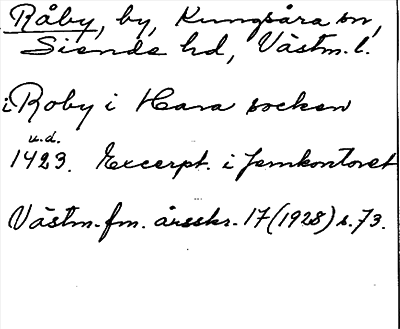 Råby, by, Kungsåra sn,
Siende hd, Västm. l.
i Roby i Hara socken
u.d.
1423. Excerpt. i Jernkontoret
Västm. fm. årsskr. 17 (1928) s. 73.